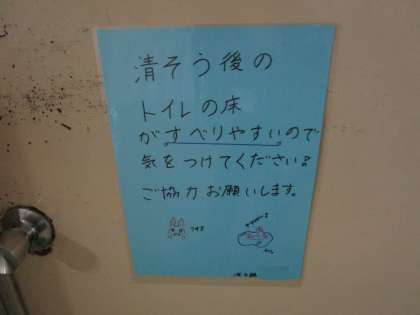 清そう後の
トイレの床
がすべりやすいので
気をつけてください!
ご協力お願いします。